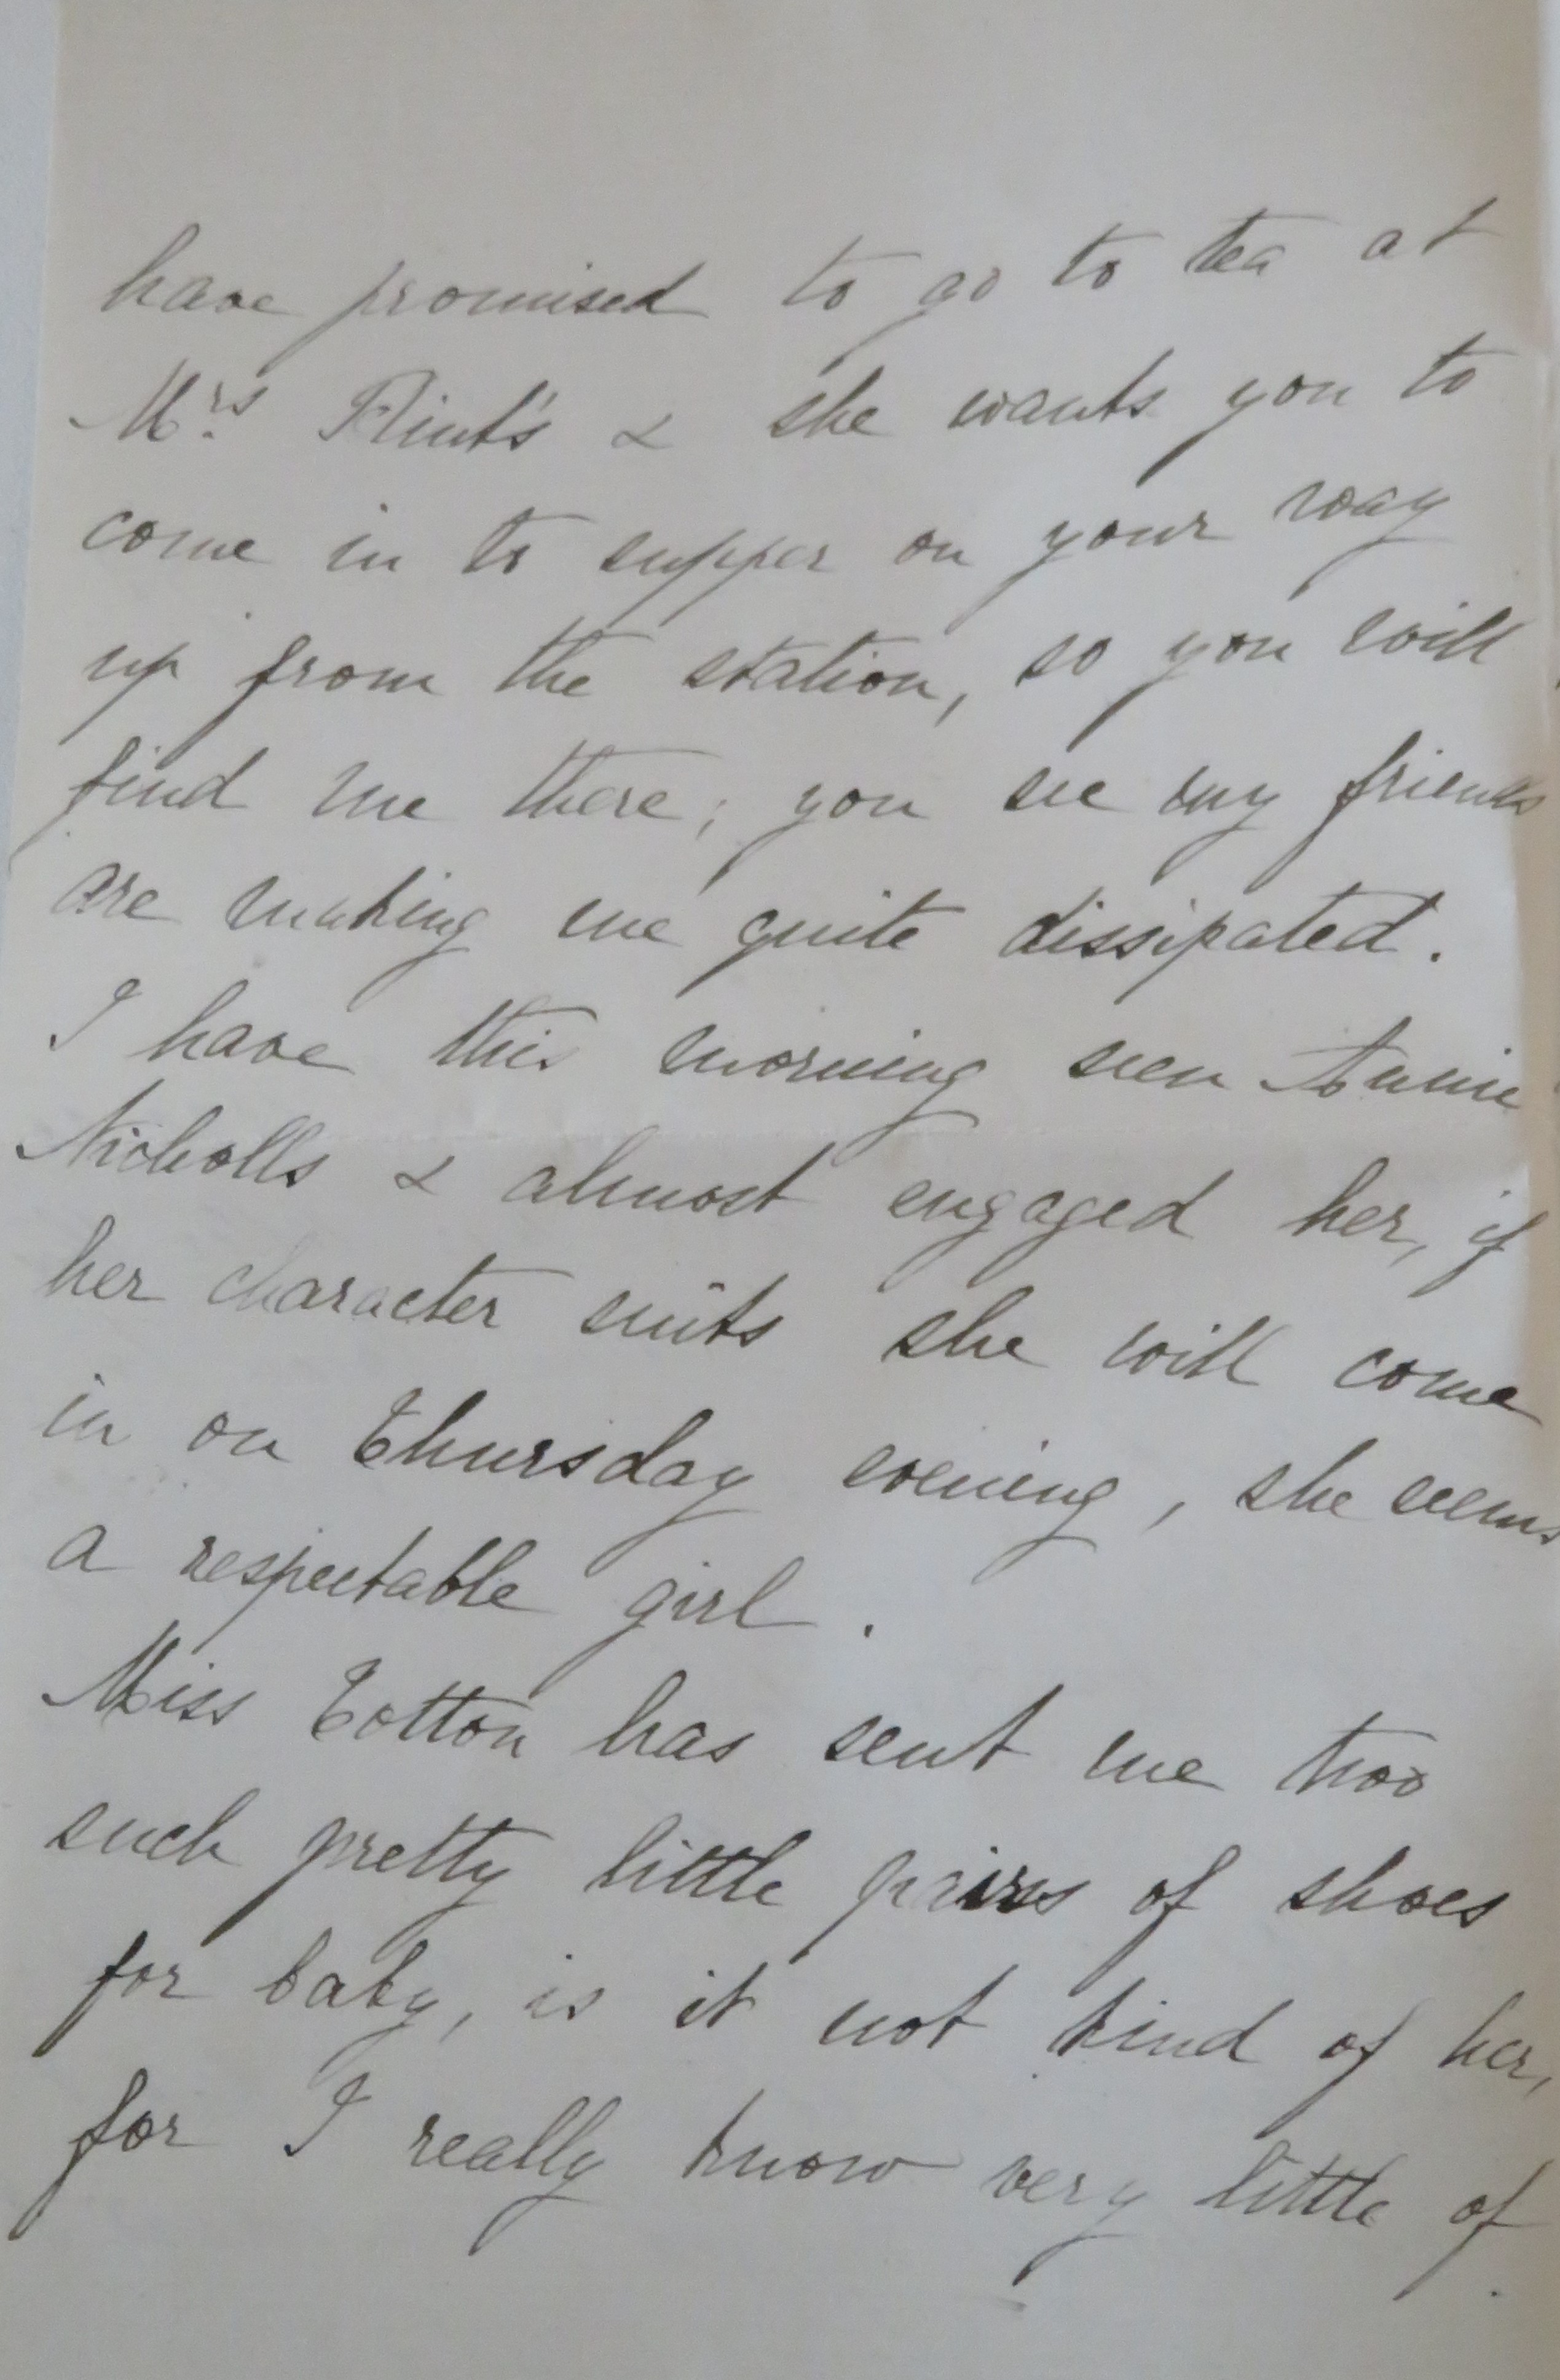 have promised to go to tea at
Mrs. Flint's & she wants you to
come in to supper on your way
up from the station, so you will
find me there; you see my friends
are making me quite dissipated.
I have this morning seen Annie
Nicholls & almost engaged her, if
her character suits she will come
in on Thursday evening, she seems
a respectable girl.
Miss Cotton has sent me two
such pretty little pairs of shoes
for baby, is it not kind of her,
for I really know very little of